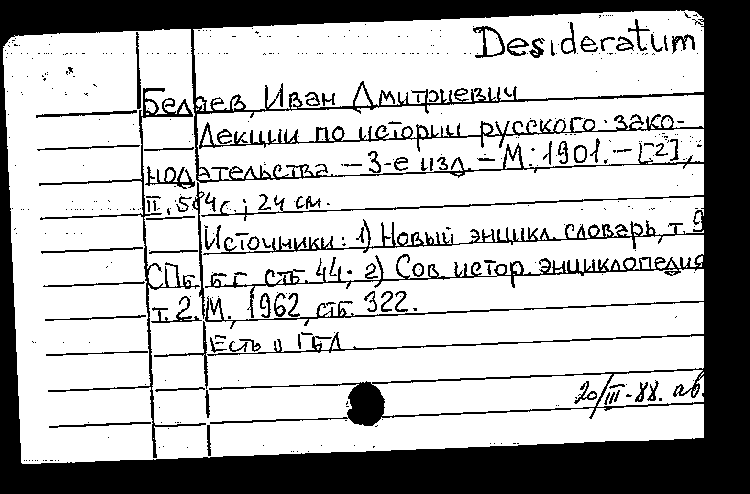 Desideratum
Беляев, Иван Дмитриевич
Лекции по истории русского зако-
нодательства. — 3-е изд. — М., 1901. — [2],
II, 584 с.; 24 см.
Источники: 1) Новый энцикл. словарь, т. 9
СПб., б.г., стб. 44; 2) Сов. истор. энциклопедия
т. 2. М., 1962, стб. 322.
Есть в ГБЛ.
20/III-88. ав.